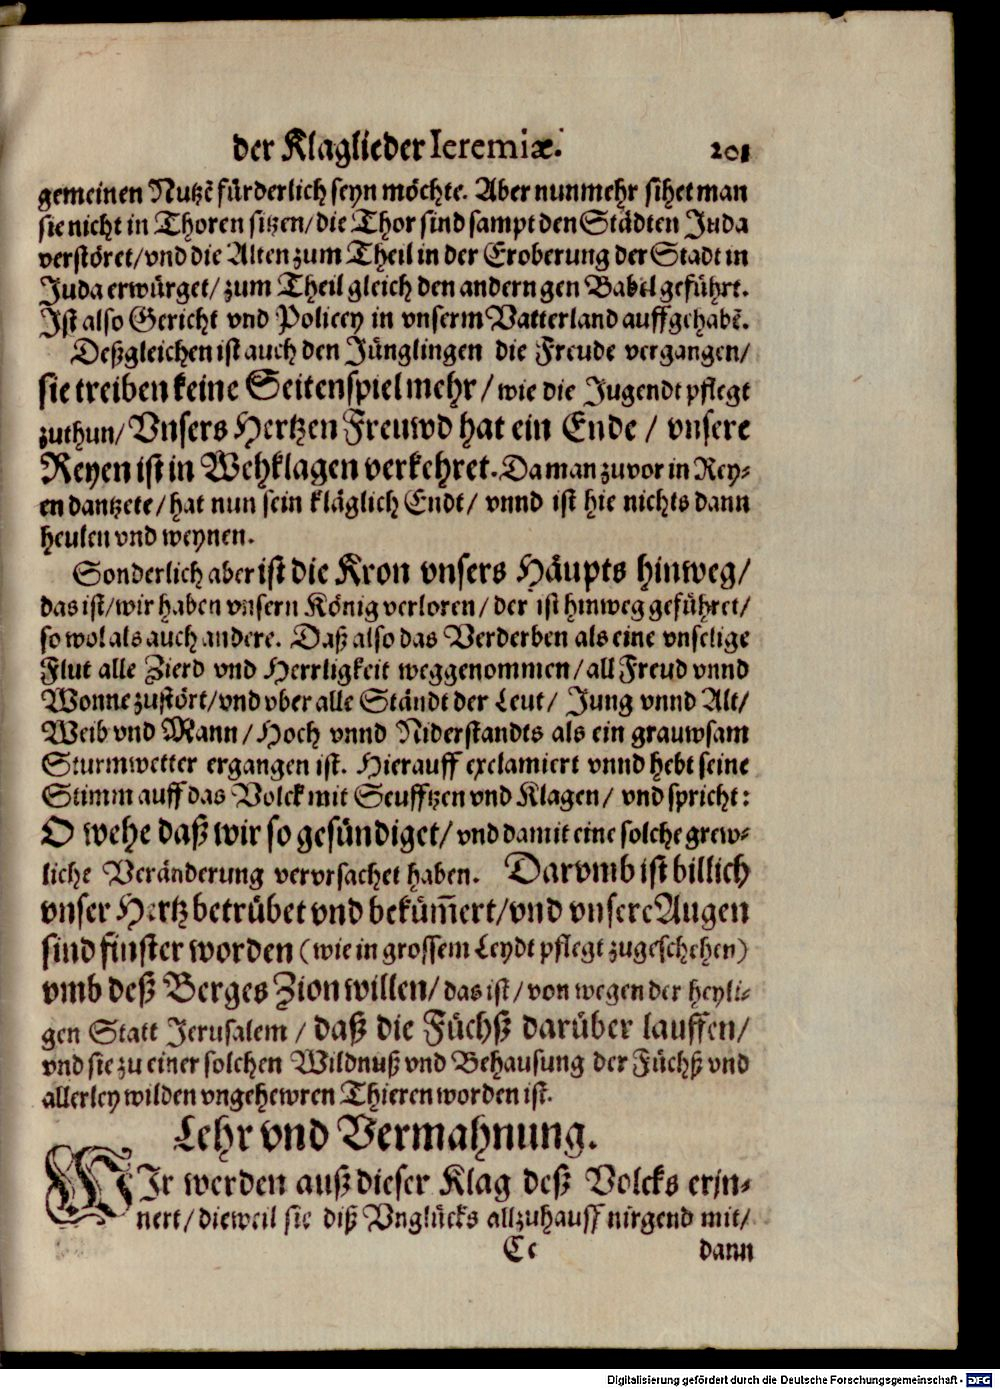 der Klaglieder Ieremiæ. 201
gemeinen Nutzẽ fürderlich seyn möchte. Aber nunmehr sihet man
sie nicht in Thoren sitzen/ die Thor sind sampt den Städten Juda
verstöret/ vnd die Alten zum Theil in der Eroberung der Stadt in
Juda erwürget/ zum Theil gleich den andern gen Babel geführt.
Ist also Gericht vnd Policey in vnserm Vatterland auffgehabẽ.
Deßgleichen ist auch den Jünglingen die Freude vergangen/
sie treiben keine Seitenspiel mehr/ wie die Jugendt pflegt
zuthun/ Vnsers Hertzen Freuwd hat ein Ende/ vnsere
Reyen ist in Wehklagen verkehret. Da man zuvor in Rey-
en dantzete/ hat nun sein kläglich Endt/ vnnd ist hie nichts dann
heulen vnd weynen.
Sonderlich aber ist die Kron vnsers Häupts hinweg/
das ist/ wir haben vnsern König verloren/ der ist hinweg geführet/
so wol als auch andere. Daß also das Verderben als eine vnselige
Flut alle Zierd vnd Herrligkeit weggenommen/ all Freud vnnd
Wonne zustört/ vnd vber alle Ständt der Leut/ Jung vnnd Alt/
Weib vnd Mann/ Hoch vnnd Niderstandts als ein grauwsam
Sturmwetter ergangen ist. Hierauff exclamiert vnnd hebt seine
Stimm auff das Volck mit Seufftzen vnd Klagen/ vnd spricht:
O wehe daß wir so gesündiget/ vnd damit eine solche grew-
liche Veränderung vervrsachet haben. Darvmb ist billich
vnser Hertz betrübet vnd bekümm̄ert/ vnd vnsere Augen
sind finster worden (wie in grossem Leydt pflegt zugeschehen)
vmb deß Berges Zion willen/ das ist/ von wegen der heyli-
gen Statt Jerusalem/ daß die Füchß darüber lauffen/
vnd sie zu einer solchen Wildnuß vnd Behausung der Füchß vnd
allerley wilden vngehewren Thieren worden ist.
Lehr vnd Vermahnung.
WIr werden auß dieser Klag deß Volcks erin-
nert/ dieweil sie diß Vnglücks allzuhauff nirgend mit/
Cc dann
Digitalisierung gefördert durch die Deutsche Forschungsgemeinschaft - DFG